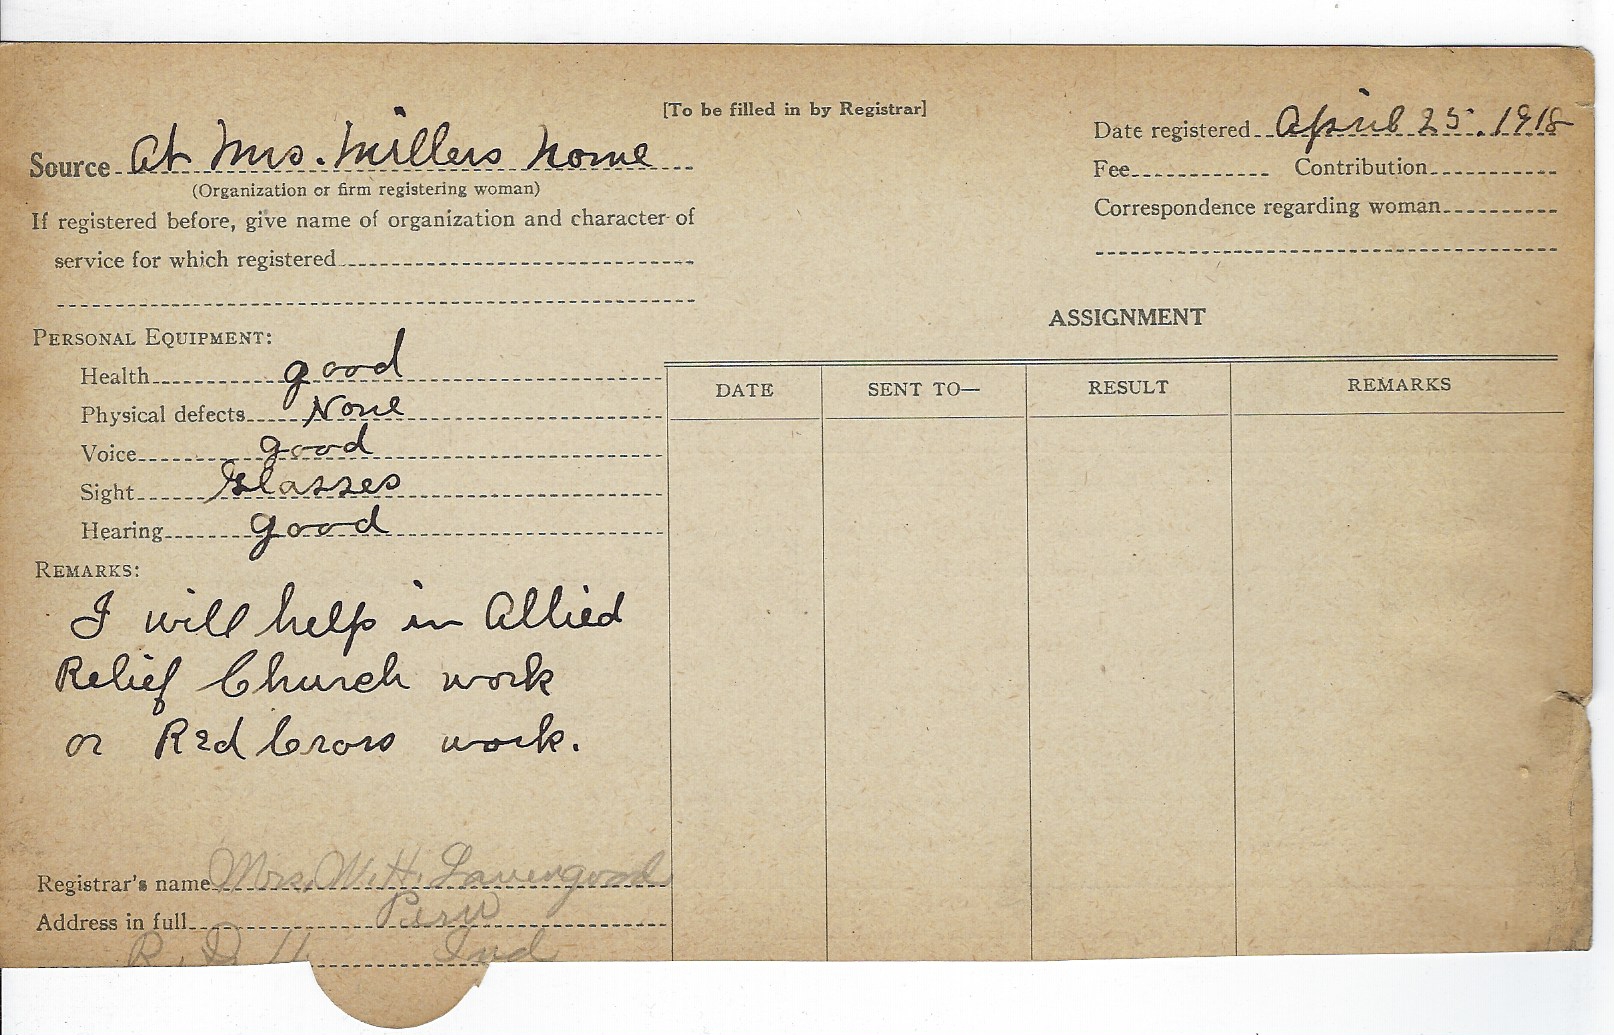 [To be filled in by Registrar]
Source At Mrs. Millers home
(Organization or firm registering woman)
If registered before, give name of organization and character of
service for which registered
Date registered April 25, 1918
Fee Contribution
Correspondence regarding woman
PERSONAL EQUIPMENT:
Health good
Physical defects None
Voice good
Sight Glasses
Hearing good
REMARKS:
I will help in Allied
Relief Church work
or Red Cross work.
Registrar's name Mrs. W. H. Lavengood
Address in full Peru
R. D. Ind
ASSIGNMENT
DATE SENT TO— RESULT REMARKS